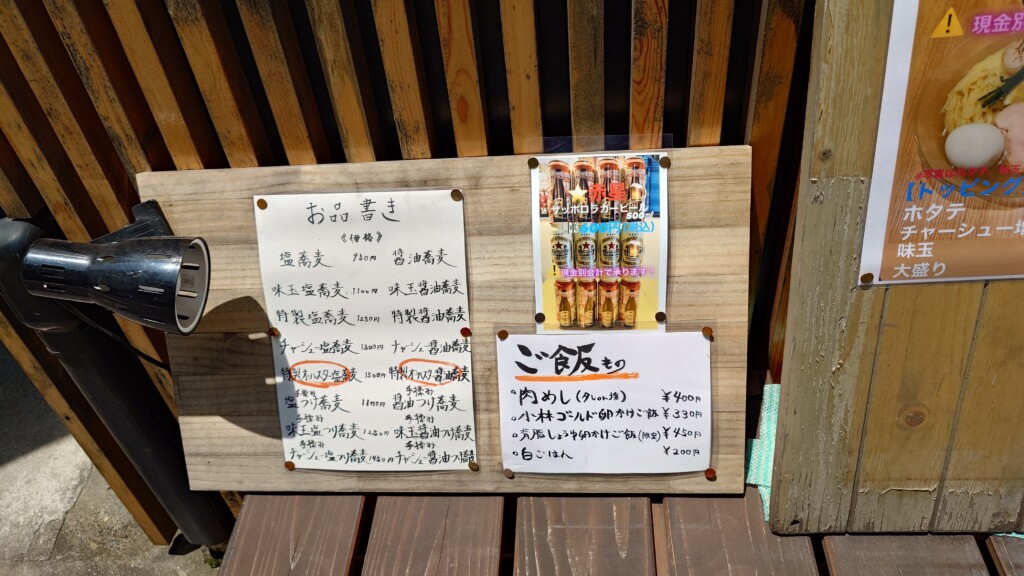 お品書き
《価格》
塩蕎麦 950円 醤油蕎麦
味玉塩蕎麦 1100円 味玉醤油蕎麦
特製塩蕎麦 1250円 特製醤油蕎麦
チャシュー塩蕎麦 1300円 チャシュー醤油蕎麦
特製オールスター塩蕎麦 1500円 特製オールスター醤油蕎麦
手揉み 手揉み
塩つけ蕎麦 1100円 醤油つけ蕎麦
手揉み 手揉み
味玉塩つけ蕎麦 1250円 味玉醤油つけ蕎麦
手揉み 手揉み
チャシュー塩つけ蕎麦 1450円 チャシュー醤油つけ蕎麦
赤星
サッポロラガービール
500ml
600円(税込)
現金別会計で承ります
ご飯もの
肉めし(タレor塩) ¥400円
小林ゴールド卵かけご飯 ¥330円
しょう卵かけご飯(限定) ¥450円
白ごはん ¥200円
現金別
【トッピング
ホタテ
チャーシュー塩
味玉
大盛り